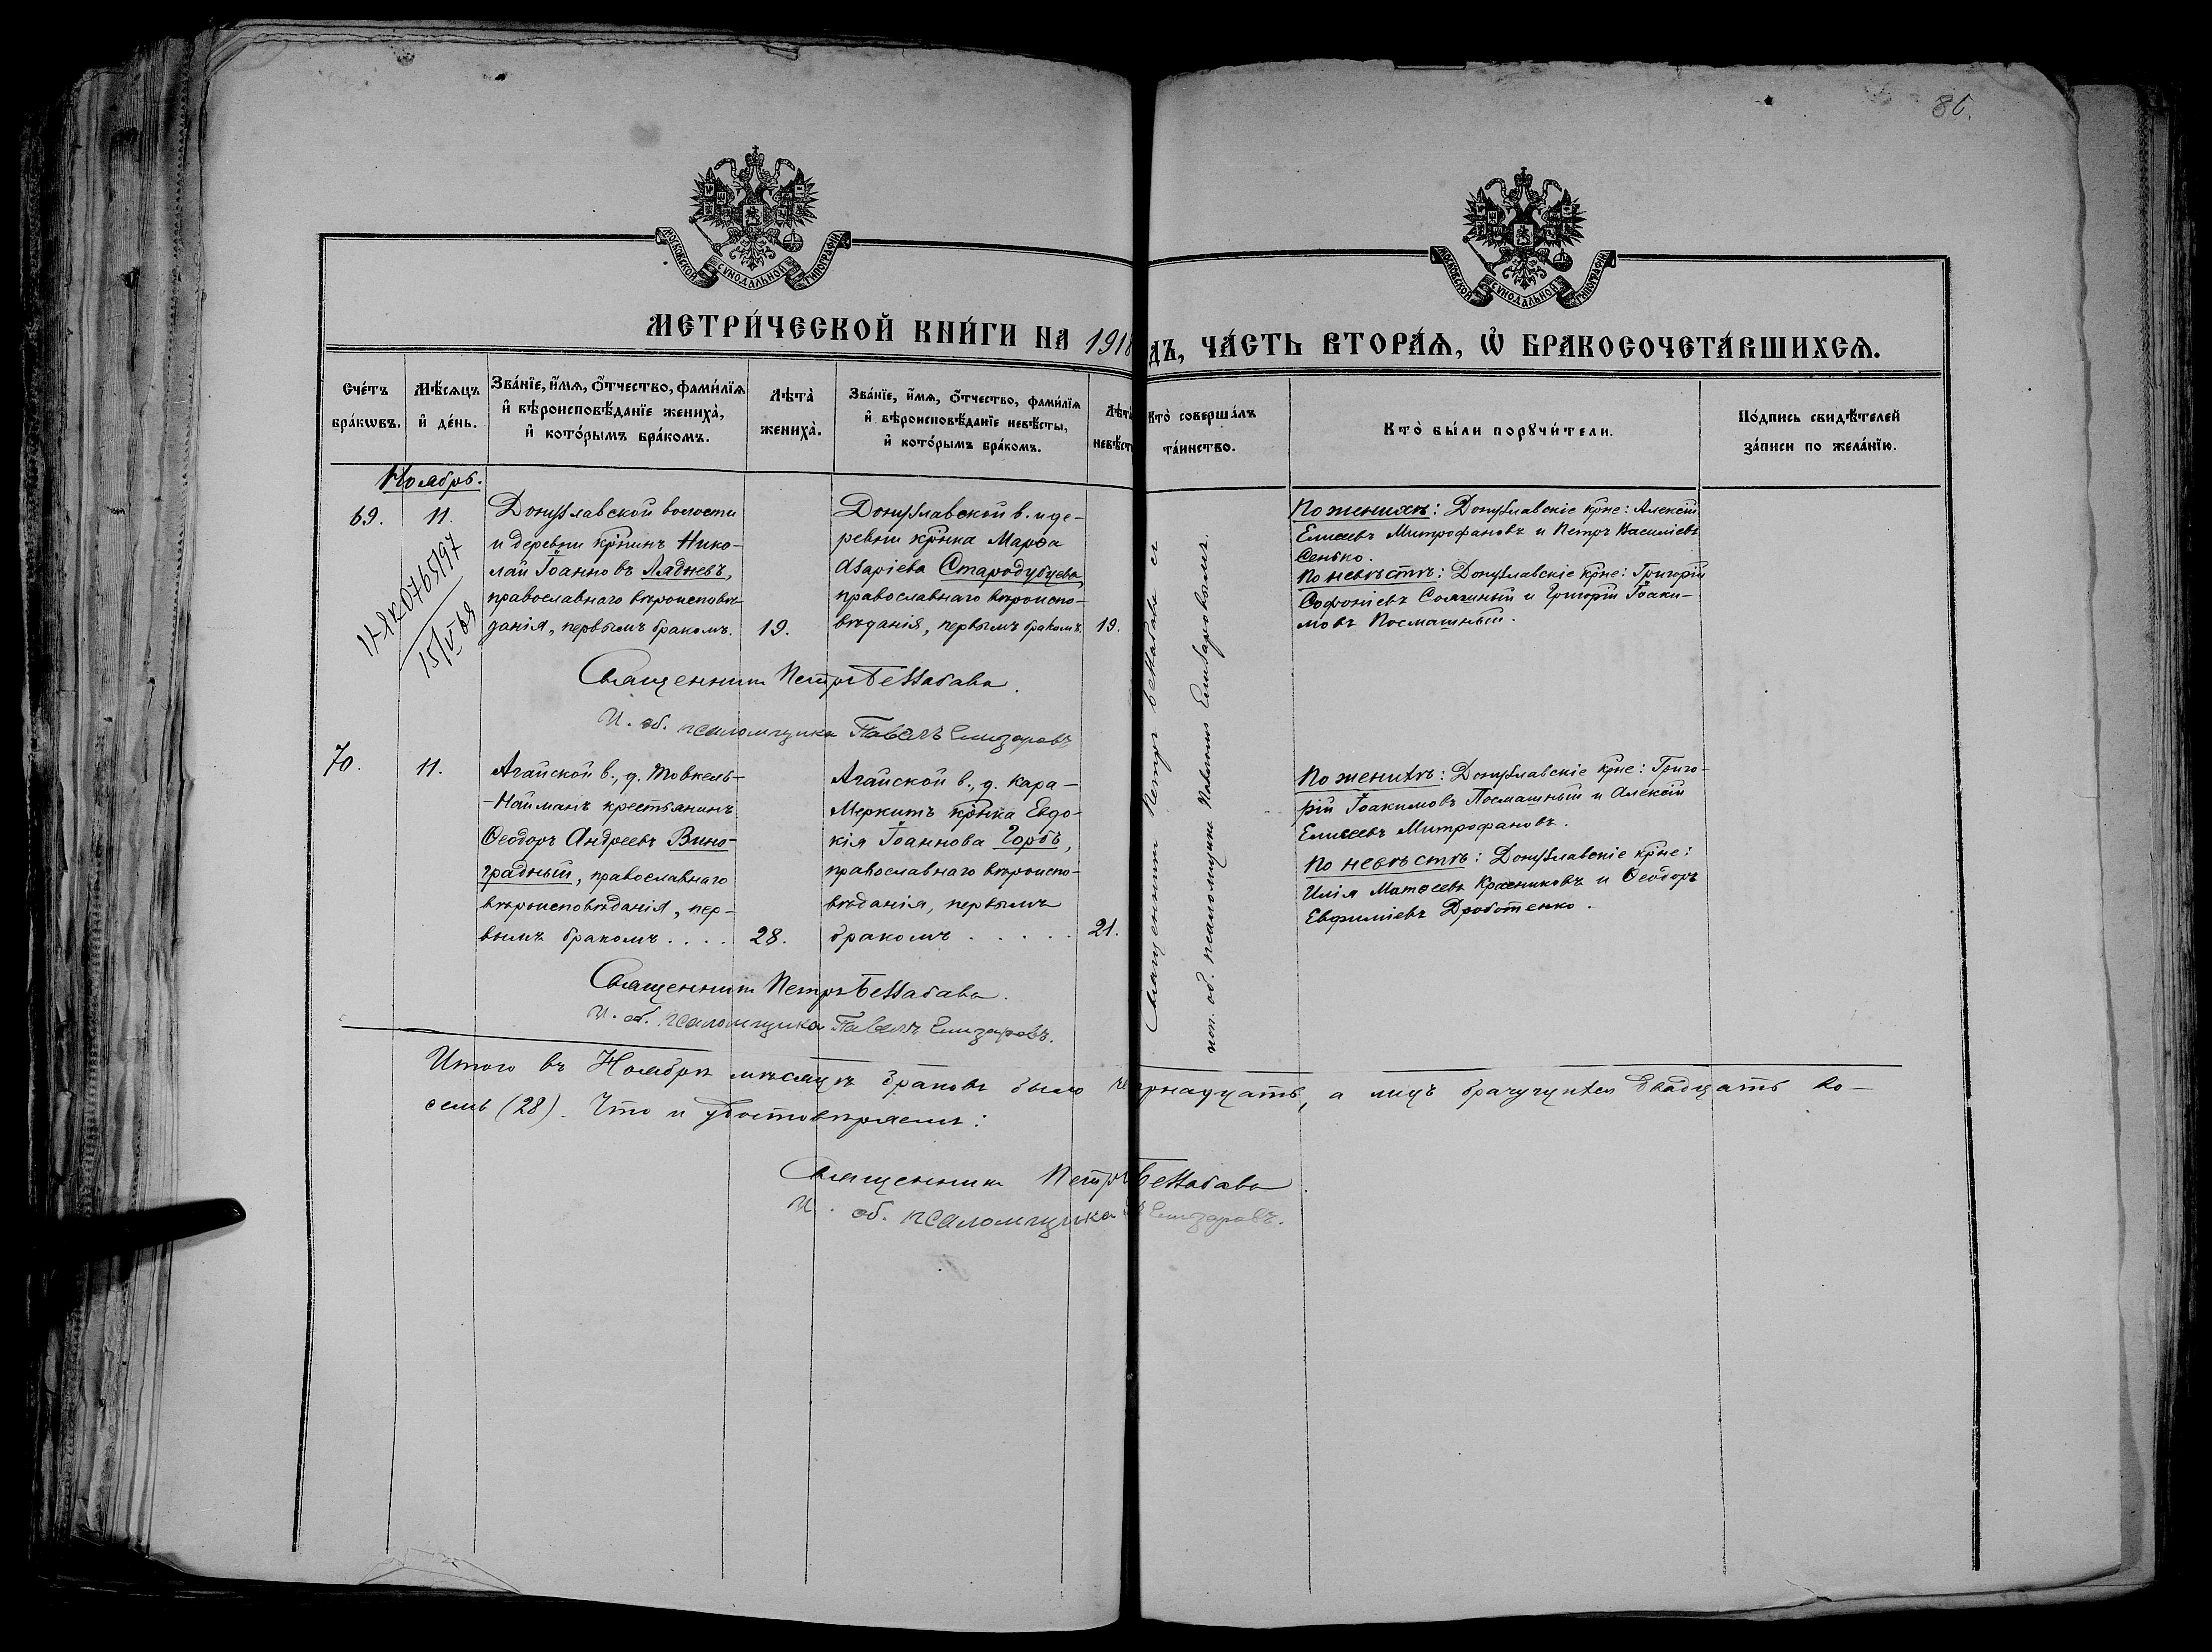 86.
МОСКОВСКОЙ СѴНОДАЛЬНОЙ ТИПОГРАФІИ
МОСКОВСКОЙ СѴНОДАЛЬНОЙ ТИПОГРАФІИ
МЕТРИ́ЧЕСКОЙ КНИ́ГИ НА 1918
ДЪ, ЧА́СТЬ ВТОРА́Ѧ, Ѡ҆ БРАКОСОЧЕТА́ВШИХСѦ.
Сче́тъ
бра́кѡвъ.
Мѣ́сѧцъ
и҆ де́нь.
Зва́нїе, и҆́мѧ, ѻ҆́тчество, фами́лїѧ
и҆ вѣроисповѣ́данїе жениха̀,
и҆ кото́рымъ бра́комъ.
Лѣта̀
жениха̀.
Зва́нїе, и҆́мѧ, ѻ҆́тчество, фами́лїѧ
и҆ вѣроисповѣ́данїе невѣ́сты,
и҆ кото́рымъ бра́комъ.
Лѣта̀
невѣ́ст
Кто̀ соверша́лъ
та́инство.
Кто̀ бы́ли порꙋчи́тели.
По́дпись свидѣ́телей
за́писи по жела́нїю.
Ноябрь.
69.
11.
Донузлавской волости
и деревни кр-нинъ Нико-
лай Іоанновъ Лядневъ,
православнаго вѣроисповѣ-
данія, первымъ бракомъ.
19.
Донузлавской в. и де-
ревни кр-нка Марѳа
Азаріева Стародубцева,
православнаго вѣроиспо-
вѣданія, первымъ бракомъ.
19.
По женихѣ: Донузлавскіе кр-не: Алексій
Елисеевъ Митрофановъ и Петръ Василіевъ
Сенько.
По невѣстѣ: Донузлавскіе кр-не: Григорій
Софоніевъ и Григорій Іоаки-
мовъ Посмашный.
0765197
15/V 69
Священникъ Петръ Беззабава.
И. об. псаломщика Павелъ Елизаровъ
70.
11.
Агайской в., д.
-Найманъ крестьянинъ
Ѳеодоръ Андреевъ Вино-
градный, православнаго
вѣроисповѣданія, пер-
вымъ бракомъ....
28.
Агайской в., д. Кара-
Меркитъ кр-нка Евдо-
кія Іоаннова Горбъ,
православнаго вѣроиспо-
вѣданія, первымъ
бракомъ.....
21.
По женихѣ: Донузлавскіе кр-не: Григо-
рій Іоакимовъ Посмашный и Алексій
Елисеевъ Митрофановъ.
По невѣстѣ: Донузлавскіе кр-не:
Илія Матѳеевъ Красниковъ и Ѳеодоръ
Евфиміевъ Дроботенко.
Священникъ Петръ Беззабава.
И. об. псаломщика Павелъ Елизаровъ.
Священникъ Петръ Беззабава съ
исп. об. псаломщика Павломъ Елизаровымъ.
Итого въ Ноябрѣ мѣсяцѣ браковъ было че рнадцать, а лицъ брачущихся двадцать во-
семь (28). Что и удостовѣряемъ:
Священникъ Петръ Беззабава
И. об. псаломщика Елизаровъ.